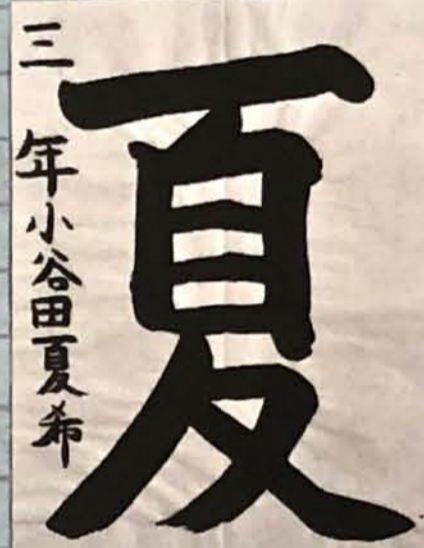 夏
三年小谷田夏希